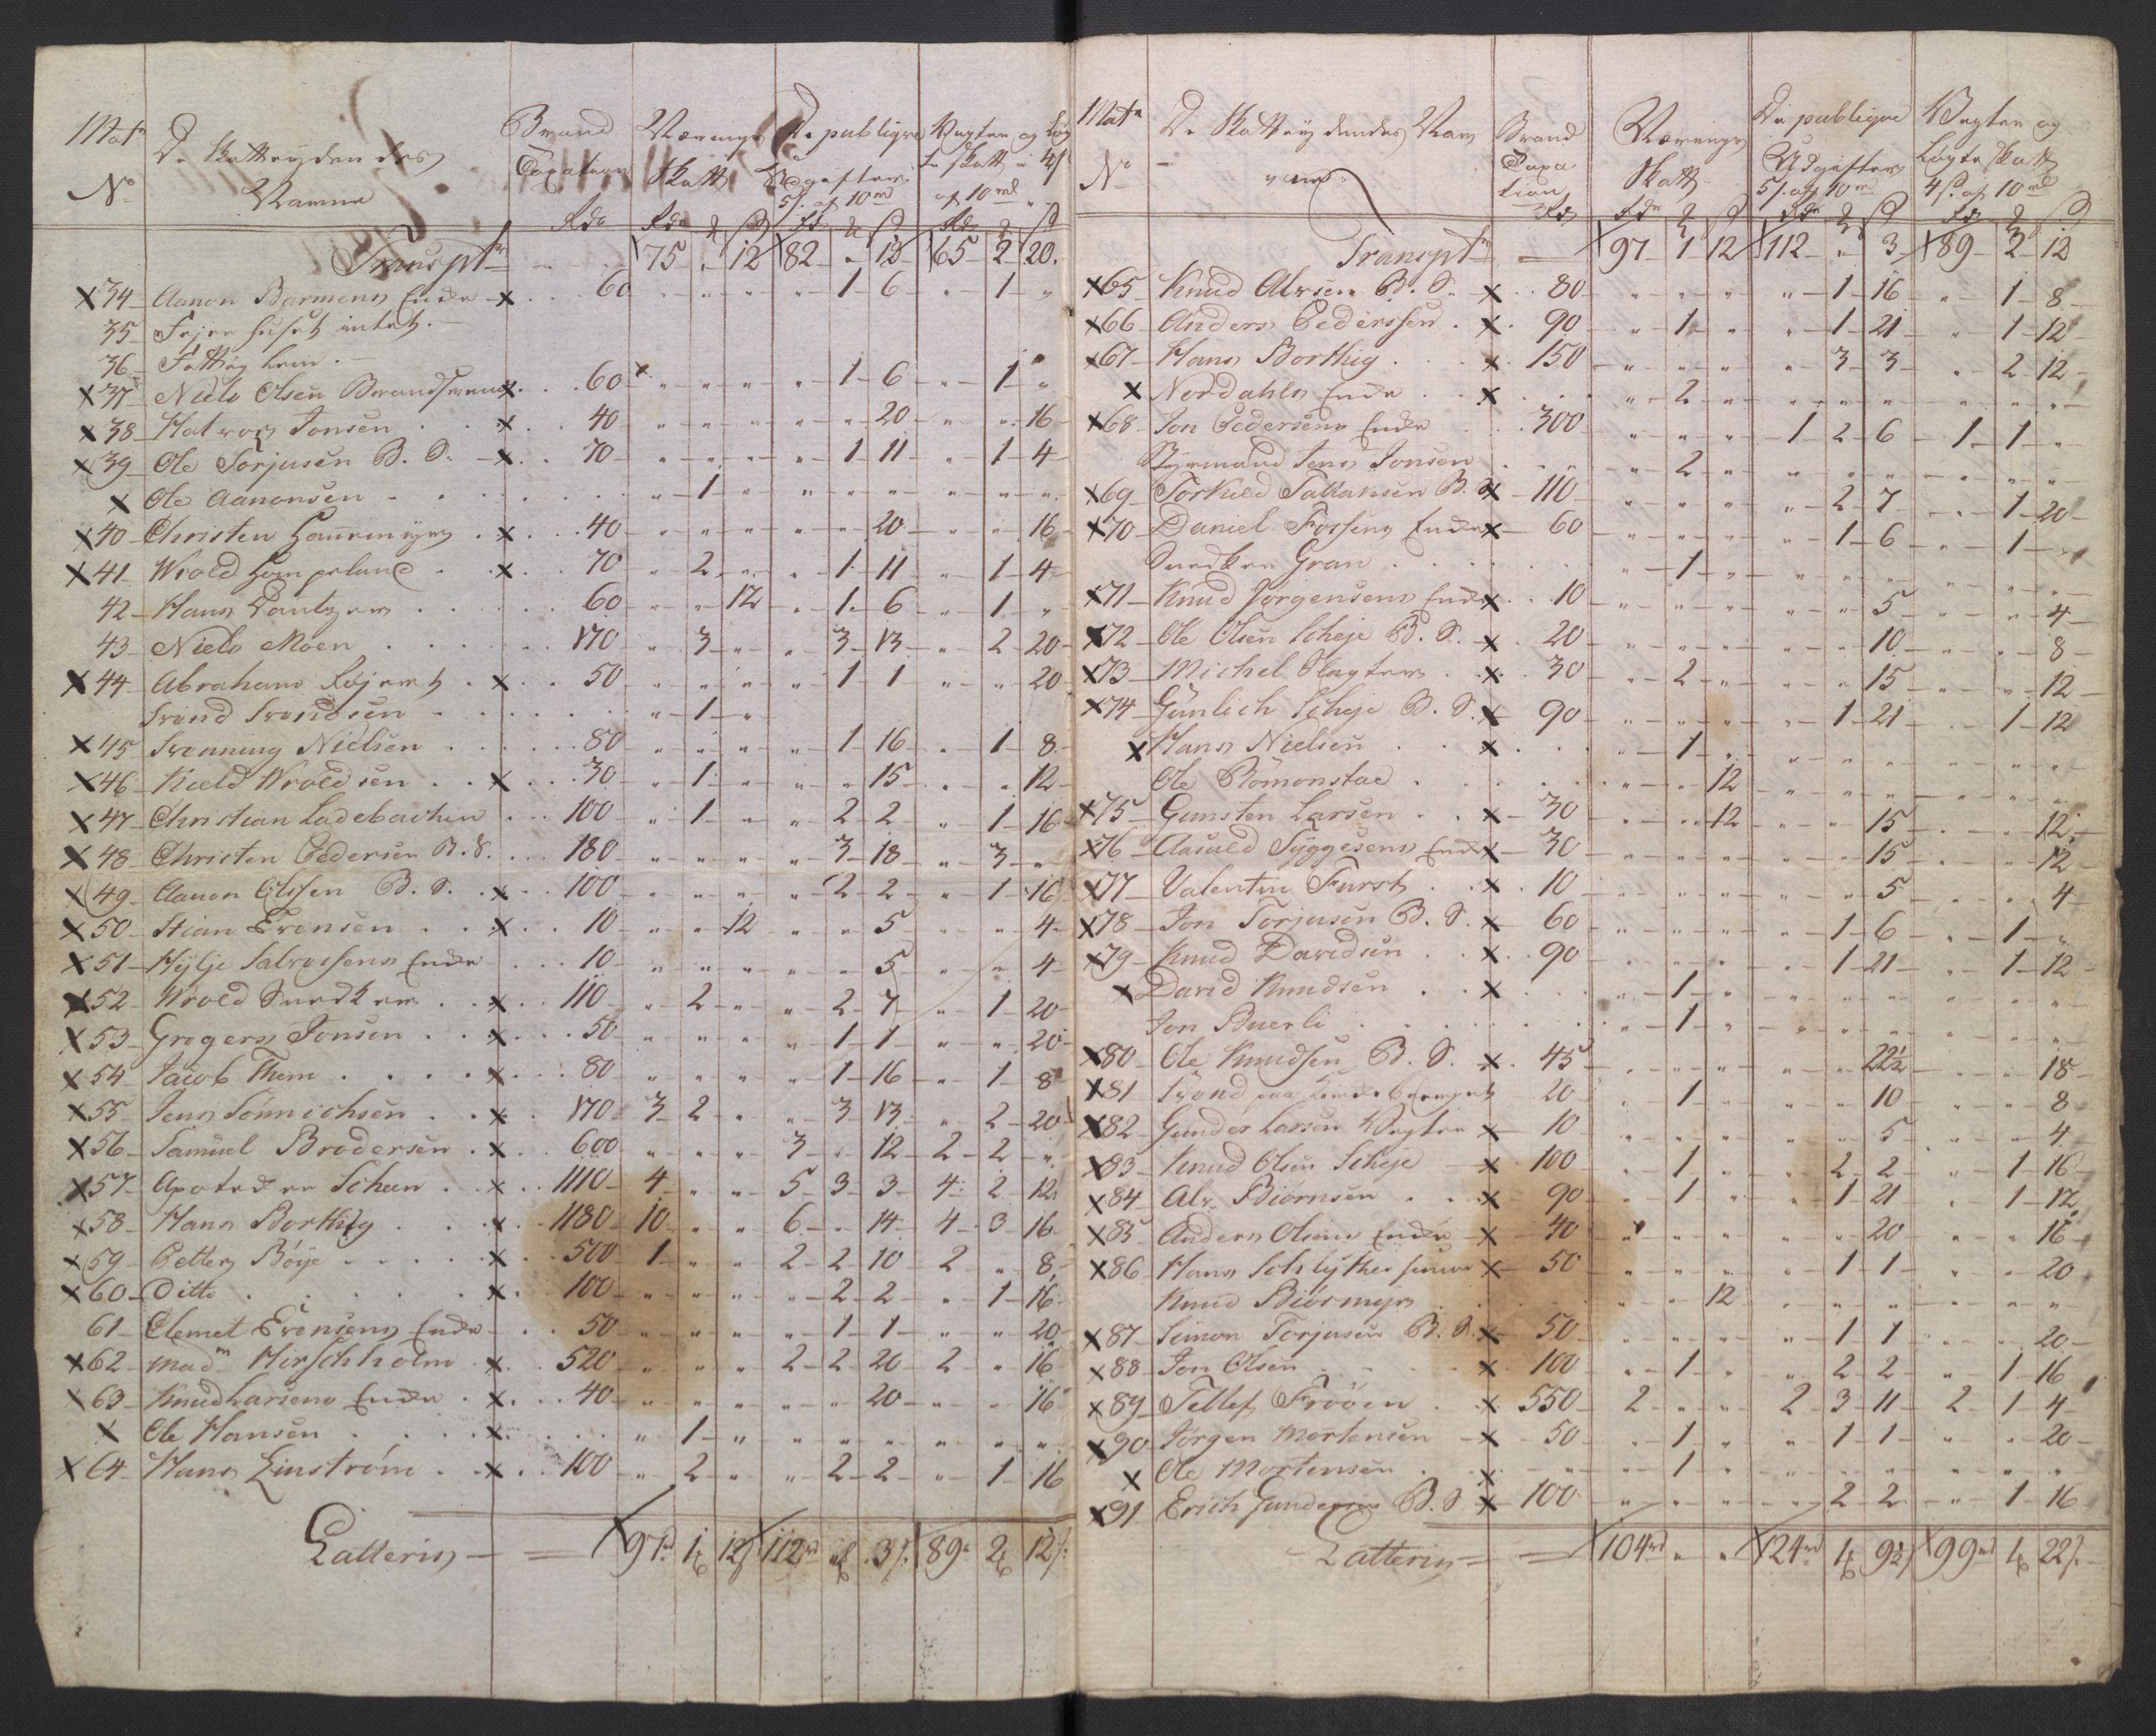 Mat.
No
De Skatteydendes
Navne
Brand
Taxation
Rdr
Nærings
Skatt
De publique
Udgifter
5 s. af 10 rd
Vegter og Løg
te Skatt 4 s
af 10 rd
Transpt 75 " 12 82 " 12 65 2 20.
34 Aanon Barmens Enke 60 " " " " 1 6 " 1 "
35 Fejer huset intet.
36 Fattig hem.
37 Niels Olsen Brandsvend 60 " " " " 1 6 " 1 "
38 Halvor Jonsen 40 " " " " " 20 " " 16
39 Ole Torjusen B. S. 70 " " " " 1 11 " 1 4
Ole Aanonsen " 1 " " " " " " "
40 Christen Haugemyr 40 " " " " " 20 " " 16
41 Wrold Gompeland 70 " 2 " " 1 11 " 1 4
42 Hans Pantzer 60 " " 12 " 1 6 " 1 "
43 Niels Moen 170 " 3 " " 3 13 " 2 20
44 Abraham Røjert 50 " " " " 1 1 " " 20
Trond Trondsen " 1 "
45 Tronning Nielsen 80 " " " " 1 16 " 1 8
46 Kield Wroldsen 30 " 1 " " " 15 " " 12
47 Christian Ladebachen 100 " 1 " " 2 2 " 1 16
48 Christen Pedersen B. S. 180 " " " " 3 18 " 3 "
49 Aanon Olssen B. S. 100 " " " " 2 2 " 1 16
50 Stian Evensen 10 " " 12 " " 5 " " 4
51 Hylje Salvessens Enke 10 " " " " " 5 " " 4
52 Wrold Snedker 110 " 2 " " 2 7 " 1 20
53 Gregers Jonsen 50 " " " " 1 1 " " 20
54 Jacob Them 80 " " " " 1 16 " 1 8
55 Jens Sönnichsen 170 3 2 " " 3 13 " 2 20
56 Samuel Brodersen 600 " " " 3 " 12 2 2 "
57 Apoteker Scheen 1110 4 " " 5 3 3 4 2 12
58 Hans Borthig 1180 10 " " 6 " 14 4 3 16
59 Petter Böye 500 1 " " 2 2 10 2 " 8
60 Ditto 100 " " " " 2 2 " 1 16
61 Clemet Evensens Enke 50 " " " " 1 1 " " 20
62 Madm Hirschholm 520 " " " 2 2 20 2 " 16
63 Knud Larsens Enke 40 " " " " " 20 " " 16
Ole Hansen " 1 " " " " " " "
64 Hans Linström 100 " 2 " " 2 2 " 1 16
Latteris 97 1 12 112 " 3 89 2 12
Matr
No
De Skatteydendes Nav
ne
Brand
Taxa
tion
Rdr
Nærings
Skatt
De publique
Udgifter
5 s. af 10 rd
Vegter og
Løgte Skatt
4 s. af 10 rd
Transpt 97 1 12 112 " 3 89 2 12
65 Knud Alvsen B. S. 80 " " " " 1 16 " 1 8
66 Anders Pederssen 90 " 1 " " 1 21 " 1 12
67 Hans Borthig 150 " " " " 3 3 " 2 12
Nordahls Enke " 2 " " " " " " "
68 Jon Pedersens Enke 300 " " " 1 2 6 1 1 "
Styrmand Jens Jonsen " 2 " " " " " " "
69 Torkild Tallaksen B. S. 110 " " " " 2 7 " 1 20
70 Daniel Fossens Enke 60 " " " " 1 6 " 1 "
Snedker Gran " 1 " " " " " " "
71 Knud Jørgensens Enke 10 " " " " " 5 " " 4
72 Ole Olsen Scheje B. S. 20 " " " " " 10 " " 8
73 Michel Slagter 30 " 2 " " " 15 " " 12
74 Gunlich Scheje B. S. 90 " " " " 1 21 " 1 12
Hans Nielsen " 1 " " " " " " "
Ole Römonstad " " 12 " " " " " "
75 Gunsten Larsen 30 " " 12 " " 15 " " 12
76 Aasuld Tyggesens Enke 30 " " " " " 15 " " 12
77 Valentin Furst 10 " " " " " 5 " " 4
78 Jon Torjusen B. S. 60 " " " " 1 6 " 1 "
79 Knud Davidsen 90 " " " " 1 21 " 1 12
David Knudsen " 1 " " " " " " "
Jon Buerli " 1 " " " " " " "
80 Ole Knudsen B. S. 45 " " " " " 22½ " " 18
81 Trond paa 20 " 1 " " " 10 " " 8
82 Gunder Larsen Vegter 10 " " " " " 5 " " 4
83 Knud Olsen Scheje 100 " 1 " " 2 2 " 1 16
84 Alv Biörnsen 90 " 1 " " 1 21 " 1 12
85 Anders Olsens Enke 40 " " " " " 20 " " 16
86 Hans Schlytter senior 50 " " " " 1 1 " " 20
Knud Biörmyr " " 12 " " " " " "
87 Simon Torjusen B. S. 50 " " " " 1 1 " " 20
88 Jon Olsen 100 " 1 " " 2 2 " 1 16
89 Tellef Fröen 550 2 " " 2 3 11 2 1 4
90 Jörgen Mortensen 50 " 1 " " 1 1 " " 20
Ole Mortensen " 1 " " " " " " "
91 Erich Gundersen B. S. 100 " " " " 2 2 " 1 16
Latteris 104 " " 124 1 9½ 99 1 22